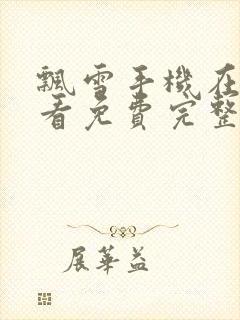 飄雪手機在
看免費完整
展華益